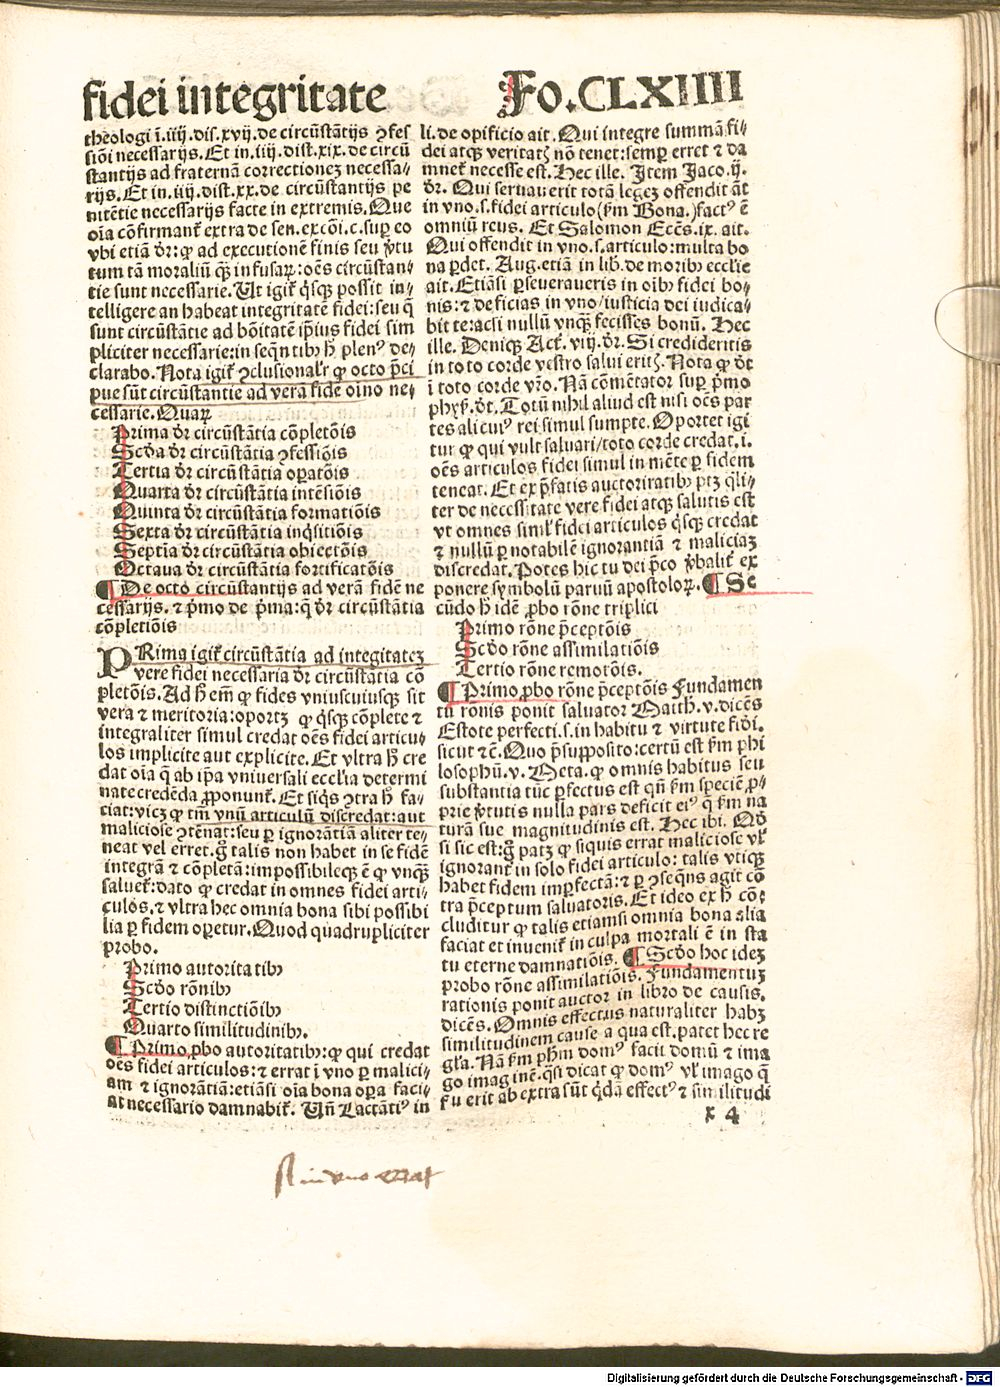 fidei integritate
Fo.CLXIIII
theologi ī.iiij.dis.xvij.de circūstātijs ꝯfes
siōi necessarijs.Et in.iiij.dist.xix.de circū
stantijs ad fraternā correctionez necessa-
rijs.Et in.iiij.dist.xx.de circūstantijs pe
nitētie necessarijs facte in extremis.Que
oīa cōfirmant᷑ extra de sen.excōi.c.sup eo
vbi etiā dr̄:ꝙ ad executionē finis seu ꝟtu
tum tā moraliū qꝫ infusaꝝ:oēs circūstan-
tie sunt necessarie.Ut igit᷑ qͥsqꝫ possit in-
telligere an habeat integritatē fidei:seu q̄
sunt circūstātie ad bōitatē ip̄ius fidei sim
pliciter necessarie:in seqn̄tibꝰ h̄ plenꝰ de-
clarabo.Nota igit᷑ ꝯclusional'r ꝙ octo p̄ci
pue sūt circūstantie ad verā fidē oīno ne-
cessarie.Quaꝝ
Prima dr̄ circūstātia cōpletōis
Scd̄a dr̄ circūstātia ꝯfessiōis
Tertia dr̄ circūstātia oꝑatōis
Quarta dr̄ circūstātia intēsiōis
Quinta dr̄ circūstātia formatiōis
Sexta dr̄ circūstātia inqͥsitiōis
Septīa dr̄ circūstātia obiectōis
Octaua dr̄ circūstātia fortificatōis
¶ De octo circūstantijs ad verā fidē ne
cessarijs.⁊ pͥmo de pͥma:q̄ dr̄ circūstātia
cōpletiōis
PRima igit᷑ circūstātia ad integritatez
vere fidei necessaria dr̄ circūstātia cō
pletōis.Ad h̄ em̄ ꝙ fides vniuscuiusqꝫ sit
vera ⁊ meritoria:oportꝫ ꝙ qͥsqꝫ cōplete ⁊
integraliter simul credat oēs fidei articu-
los implicite aut explicite.Et vltra h̄ cre
dat oīa q̄ ab ip̄a vniuersali eccl'ia determi
nate credēda ꝓponunt᷑.Et siqͥs ꝯtra h̄ fa-
ciat:vicꝫ ꝙ tm̄ vnū articulū discredat:aut
maliciose ꝯtēnat:seu ꝑ ignorātiā aliter te-
neat vel erret.gͦ talis non habet in se fidē
integrā ⁊ cōpletā:impossibileqꝫ ē ꝙ vnqꝫ
saluet᷑:dato ꝙ credat in omnes fidei arti-
culos.⁊ vltra hec omnia bona sibi possibi
lia ꝑ fidem oꝑetur.Quod quadrupliciter
probo.
Primo autoritatibꝰ
Scd̄o rōnibꝰ
Tertio distinctiōibꝰ
Quarto similitudinibꝰ.
¶ Primo ꝓbo autoritatibꝰ:ꝙ qui credat
oēs fidei articulos:⁊ errat ī vno ꝑ malici-
am ⁊ ignorātiā:etiāsi oīa bona oꝑa faci-
at necessario damnabit᷑. Un̄ Lactātiꝰ in
li.de opificio ait.Qui integre summā fi-
dei atqꝫ veritatꝭ nō tenet:semꝑ erret ⁊ da
mnet᷑ necesse est.Hec ille. Item Jaco.ij.
dr̄. Qui seruauerit totā legeꝫ offendit āt
in vno.s.fidei articulo(ẜm Bona.)factꝰ ē
omniū reus. Et Salomon Ecēs.ix. ait.
Qui offendit in vno.s.articulo:multa bo
na ꝑdet. Aug.etiā in lib.de moribꝰ ecclie
ait.Etiāsi ꝑseueraueris in oībꝰ fidei bo-
nis:⁊ deficias in vno/iusticia dei iudica-
bit te:acsi nullū vnqꝫ fecisses bonū. Hec
ille. Deniqꝫ Act᷑. viij.dr̄. Si credideritis
in toto corde vestro salui eritꝭ.Nota ꝙ dt̄
ī toto corde vr̄o. Nā cōmētator suꝑ pͥmo
phyẜ.dt̄.Totū nihil aliud est nisi oēs par
tes alicuiꝰ rei simul sumpte.Oportet igi
tur ꝙ qui vult saluari/toto corde credat.i.
oēs articulos fidei simul in mēte ꝑ fidem
teneat.Et ex p̄fatis auctoritatibꝰ ptꝫ qͣli-
ter de necessitate vere fidei atqꝫ salutis est
vt omnes simĺ fidei articulos qͥsqꝫ credat
⁊ nullū ꝑ notabilē ignorantiā ⁊ maliciaꝫ
discredat.Potes hic tu dei p̄co ꝟbalit᷑ ex
ponere symbolū paruū apostoloꝝ. ¶ Se
cūdo h̄ idē ꝓbo rōne triplici
Primo rōne p̄ceptōis
Scd̄o rōne assimilatiōis
Tertio rōne remotōis.
¶ Primo ꝓbo rōne p̄ceptōis Fundamen
tū rōnis ponit saluator Maith.v.dicēs
Estote perfecti.s.in habitu ⁊ virtute fidei.
sicut ⁊c̄.Quo p̄supposito:certū est ẜm phi
losophū.v.Meta.ꝙ omnis habitus seu
substantia tūc ꝑfectus est qn̄ ẜm speciē ꝓ-
prie ꝟtutis nulla pars deficit eiꝰ q̄ ẜm na
turā sue magnitudinis est. Hec ibi. Mō
si sic est:gͦ patꝫ ꝙ siquis errat maliciose vl̓
ignorant᷑ in solo fidei articulo: talis vtiqꝫ
habet fidem imꝑfectā:⁊ ꝑ ꝯseqn̄s agit cō
tra p̄ceptum saluatoris.Et ideo ex h̄ con-
cluditur ꝙ talis etiamsi omnia bona alia
faciat et inuenit᷑ in culpa mortali ē in sta
tu eterne damnatiōis. ¶ Scd̄o hoc ideꝫ
probo rōne assimilatiōis. Fundamentuꝫ
rationis ponit auctor in libro de causis.
dicēs. Omnis effectus naturaliter habꝫ
similitudinem cause a qua est.patet hec re
gl'a. Nā ẜm ph̄m domꝰ facit domū ⁊ ima
go imaginē.qͣsi dicat ꝙ domꝰ vl̓ imago q̄
fͣu erit ab extra sūt qͥdā effectꝰ ⁊ similitudi
x 4
in vno errat
Digitalisierung gefördert durch die Deutsche Forschungsgemeinschaft - DFG